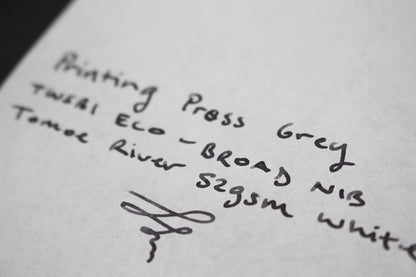 Printing Press Grey
TWSBI ECO - BROAD NIB
Tomoe River 52gsm White